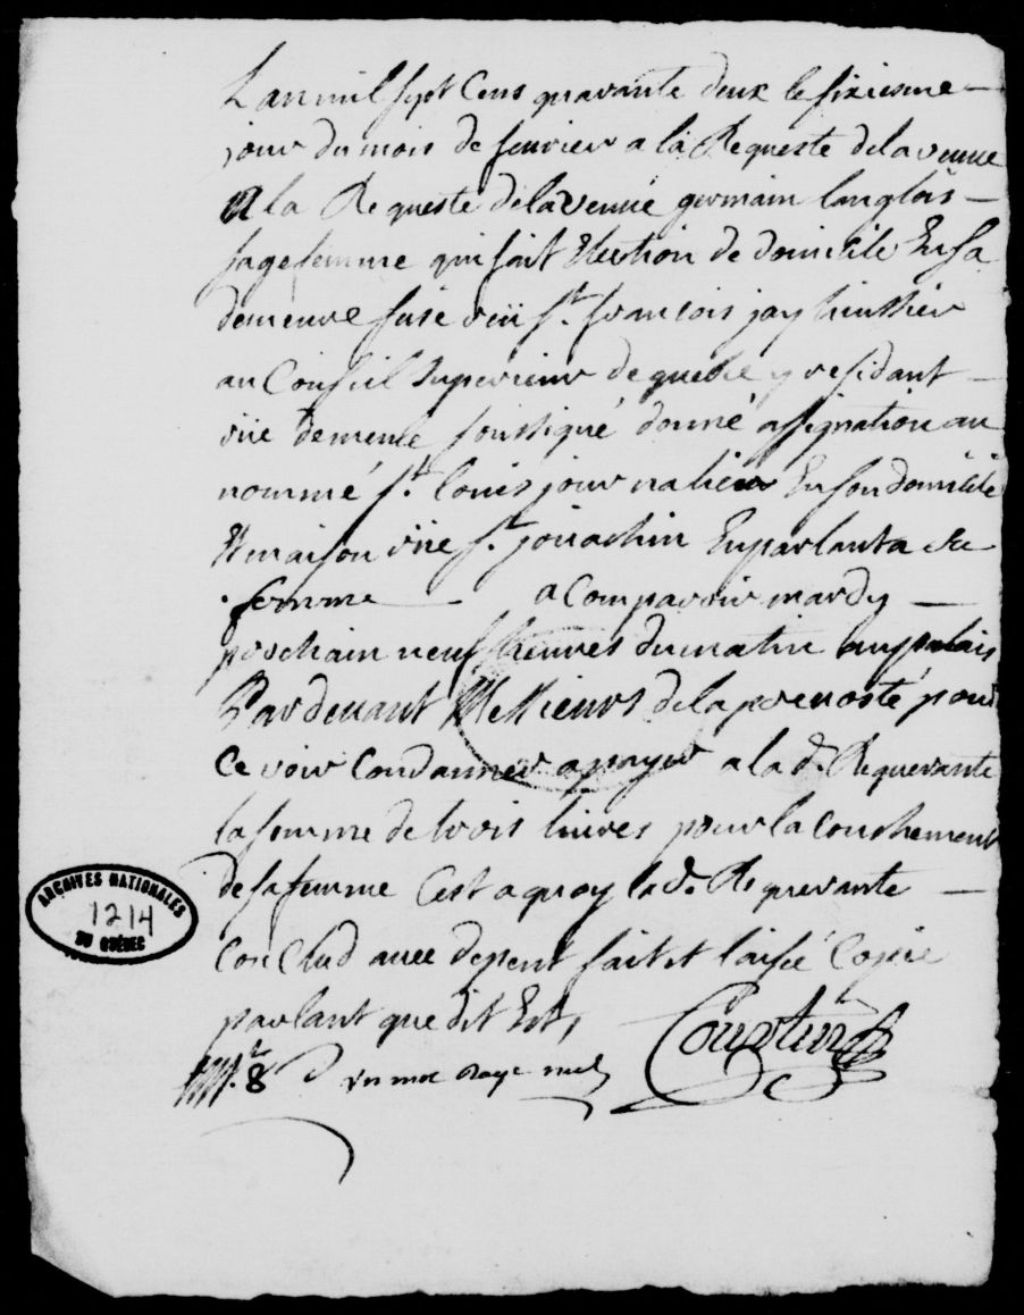 Lan mil sept Cens quarante deux le sixiesme
jour du mois de feuvier a la Requeste dela veuue
a la Requeste dela veuue germain langlois
sage femme qui fait Election de domicile En sa
demeure sise rüe st. francois jay huissier
au Conseil Superieur de quebec y residant
rüe demeule soussigné donné assignation au
nommé st. louis journalier En son domicile
Et maison rüe st. jouachin En parlant a
femme a Comparoir mardy
prochain neuf heures du matin au palais
Pardeuant Messieurs dela preuosté pour
Ce voir Condanner a payer a la d. Requerante
la somme de trois liures pour la Couchement
de sa femme Cest a quoy la d. Requerante
Conclud auec depent fait et laissé Copie
parlant que dit Est,
8 un mot Raye nul
Courtin
ARCHIVES NATIONALES
1214
DU QUÉBEC